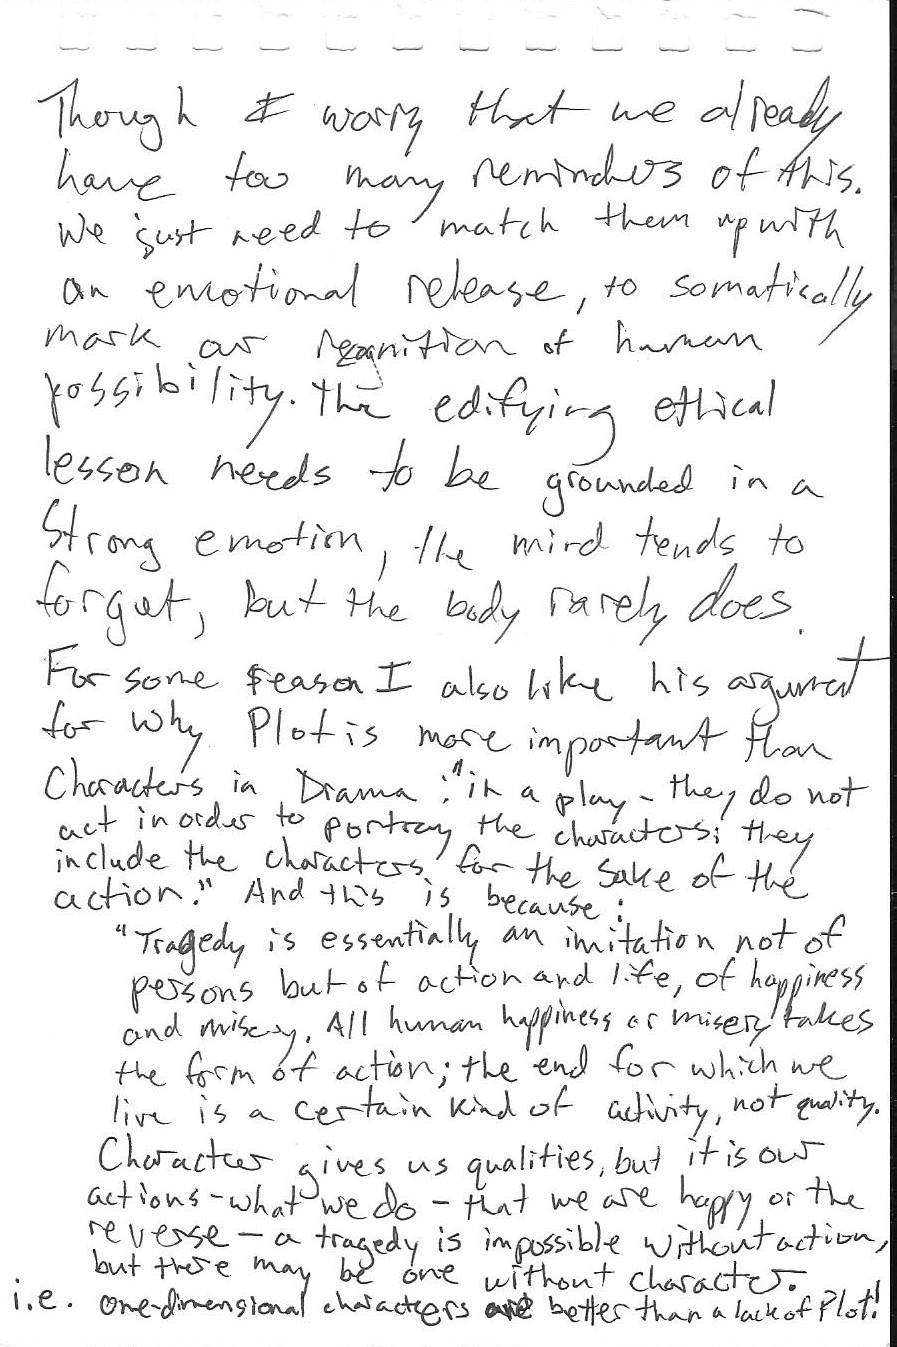 Though I worry that we already
have too many reminders of this.
We just need to match them up with
an emotional release, to somatically
mark our recognition of human
possibility. The edifying ethical
lesson needs to be grounded in a
Strong emotion, the mind tends to
forget, but the body rarely does.
For some reason I also like his argument
for why Plot is more important than
Characters in Drama: "in a play - they do not
act in order to portray the characters; they
include the characters for the sake of the
action." And this is because:
"Tragedy is essentially an imitation not of
persons but of action and life, of happiness
and misery. All human happiness or misery takes
the form of action; the end for which we
live is a certain kind of activity, not quality.
Character gives us qualities, but it is our
actions - what we do - that we are happy or the
reverse - a tragedy is impossible without action,
but there may be one without character.
i.e. one-dimensional characters are better than a lack of Plot!